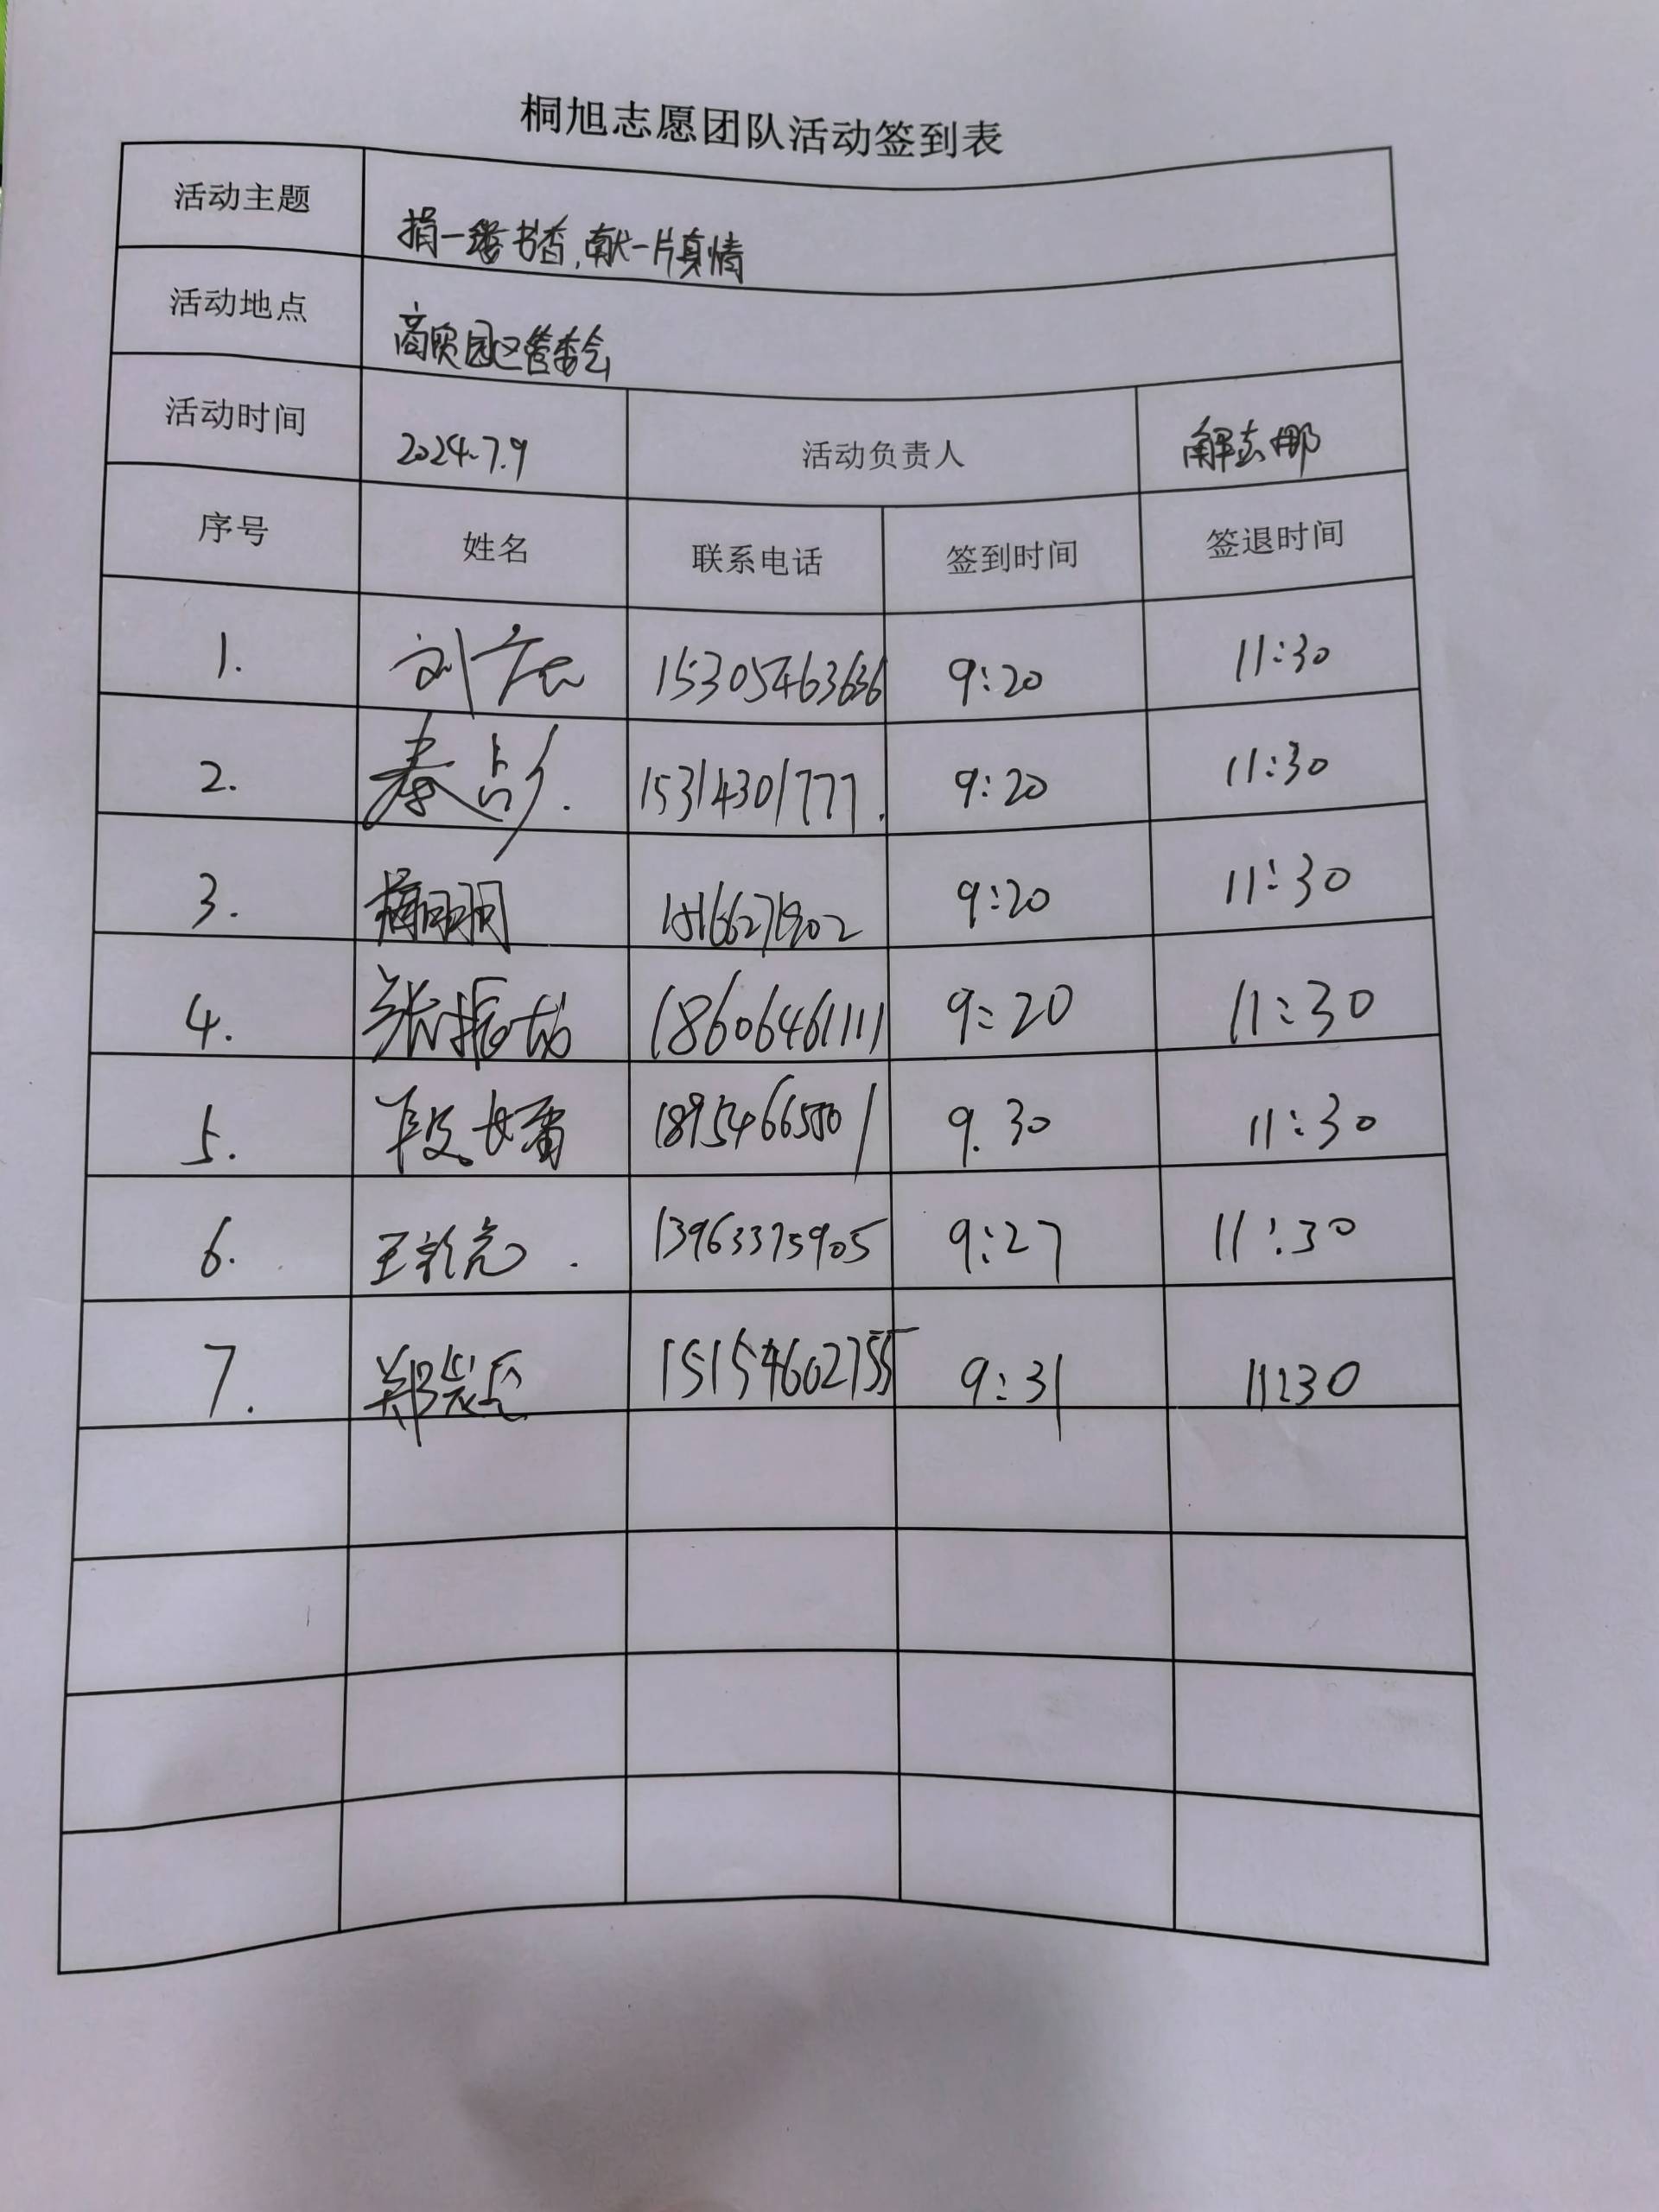 桐旭志愿团队活动签到表
活动主题 捐一缕书香,献一片真情
活动地点 商贸园区管委会
活动时间 2024.7.9 活动负责人 解志娜
序号 姓名 联系电话 签到时间 签退时间
1. 15305463636 9:20 11:30
2. 秦 15314301777. 9:20 11:30
3. 9:20 11:30
4. 张振 18606461111 9:20 11:30
5. 段 18954665501 9.30 11:30
6. 王 13963375905 9:27 11:30
7. 郑 15154602755 9:31 11:30